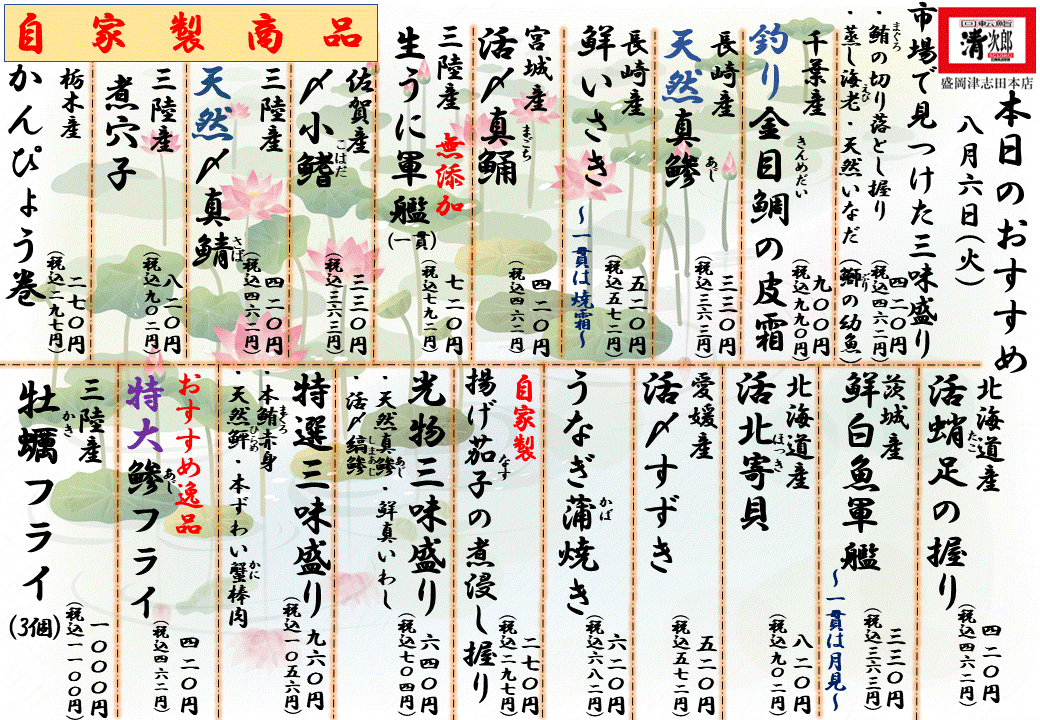 回転鮨
清次郎
盛岡津志田本店
本日のおすすめ
八月六日(火)
市場で見つけた三味盛り
・鮪の切り落とし握り
まぐろ
・蒸し海老・天然いなだ(鰤の幼魚)
えび
ぶり
四二〇円
(税込四六二円)
千葉産
釣り金目鯛の皮霜
きんめだい
九〇〇円
(税込九九〇円)
長崎産
天然真鯵
あじ
三三〇円
(税込三六三円)
長崎産
鮮いさき
~一貫は焼霜~
五二〇円
(税込五七二円)
宮城産
活〆真鯒
まごち
四二〇円
(税込四六二円)
三陸産
無添加
生うに軍艦(一貫)
七二〇円
(税込七九二円)
佐賀産
〆小鰭
こはだ
三三〇円
(税込三六三円)
三陸産
天然〆真鯖
さば
四二〇円
(税込四六二円)
自家製商品
三陸産
煮穴子
八二〇円
(税込九〇二円)
栃木産
かんぴょう巻
二七〇円
(税込二九七円)
北海道産
活蛸足の握り
たこ
四二〇円
(税込四六二円)
茨城産
鮮白魚軍艦
~一貫は月見~
三三〇円
(税込三六三円)
北海道産
活北寄貝
ほっき
八二〇円
(税込九〇二円)
愛媛産
活〆すずき
五二〇円
(税込五七二円)
うなぎ蒲焼き
かば
六二〇円
(税込六八二円)
自家製
揚げ茄子の煮浸し握り
なす
二七〇円
(税込二九七円)
光物三味盛り
・天然真鯵・鮮真いわし
あじ
・活〆縞鯵
しまあじ
六四〇円
(税込七〇四円)
特選三味盛り
・本鮪赤身
まぐろ
・天然鮃・本ずわい蟹棒肉
ひらめ
かに
九六〇円
(税込一〇五六円)
おすすめ逸品
特大鯵フライ
あじ
四二〇円
(税込四六二円)
三陸産
牡蠣フライ(3個)
かき
一〇〇〇円
(税込一一〇〇円)